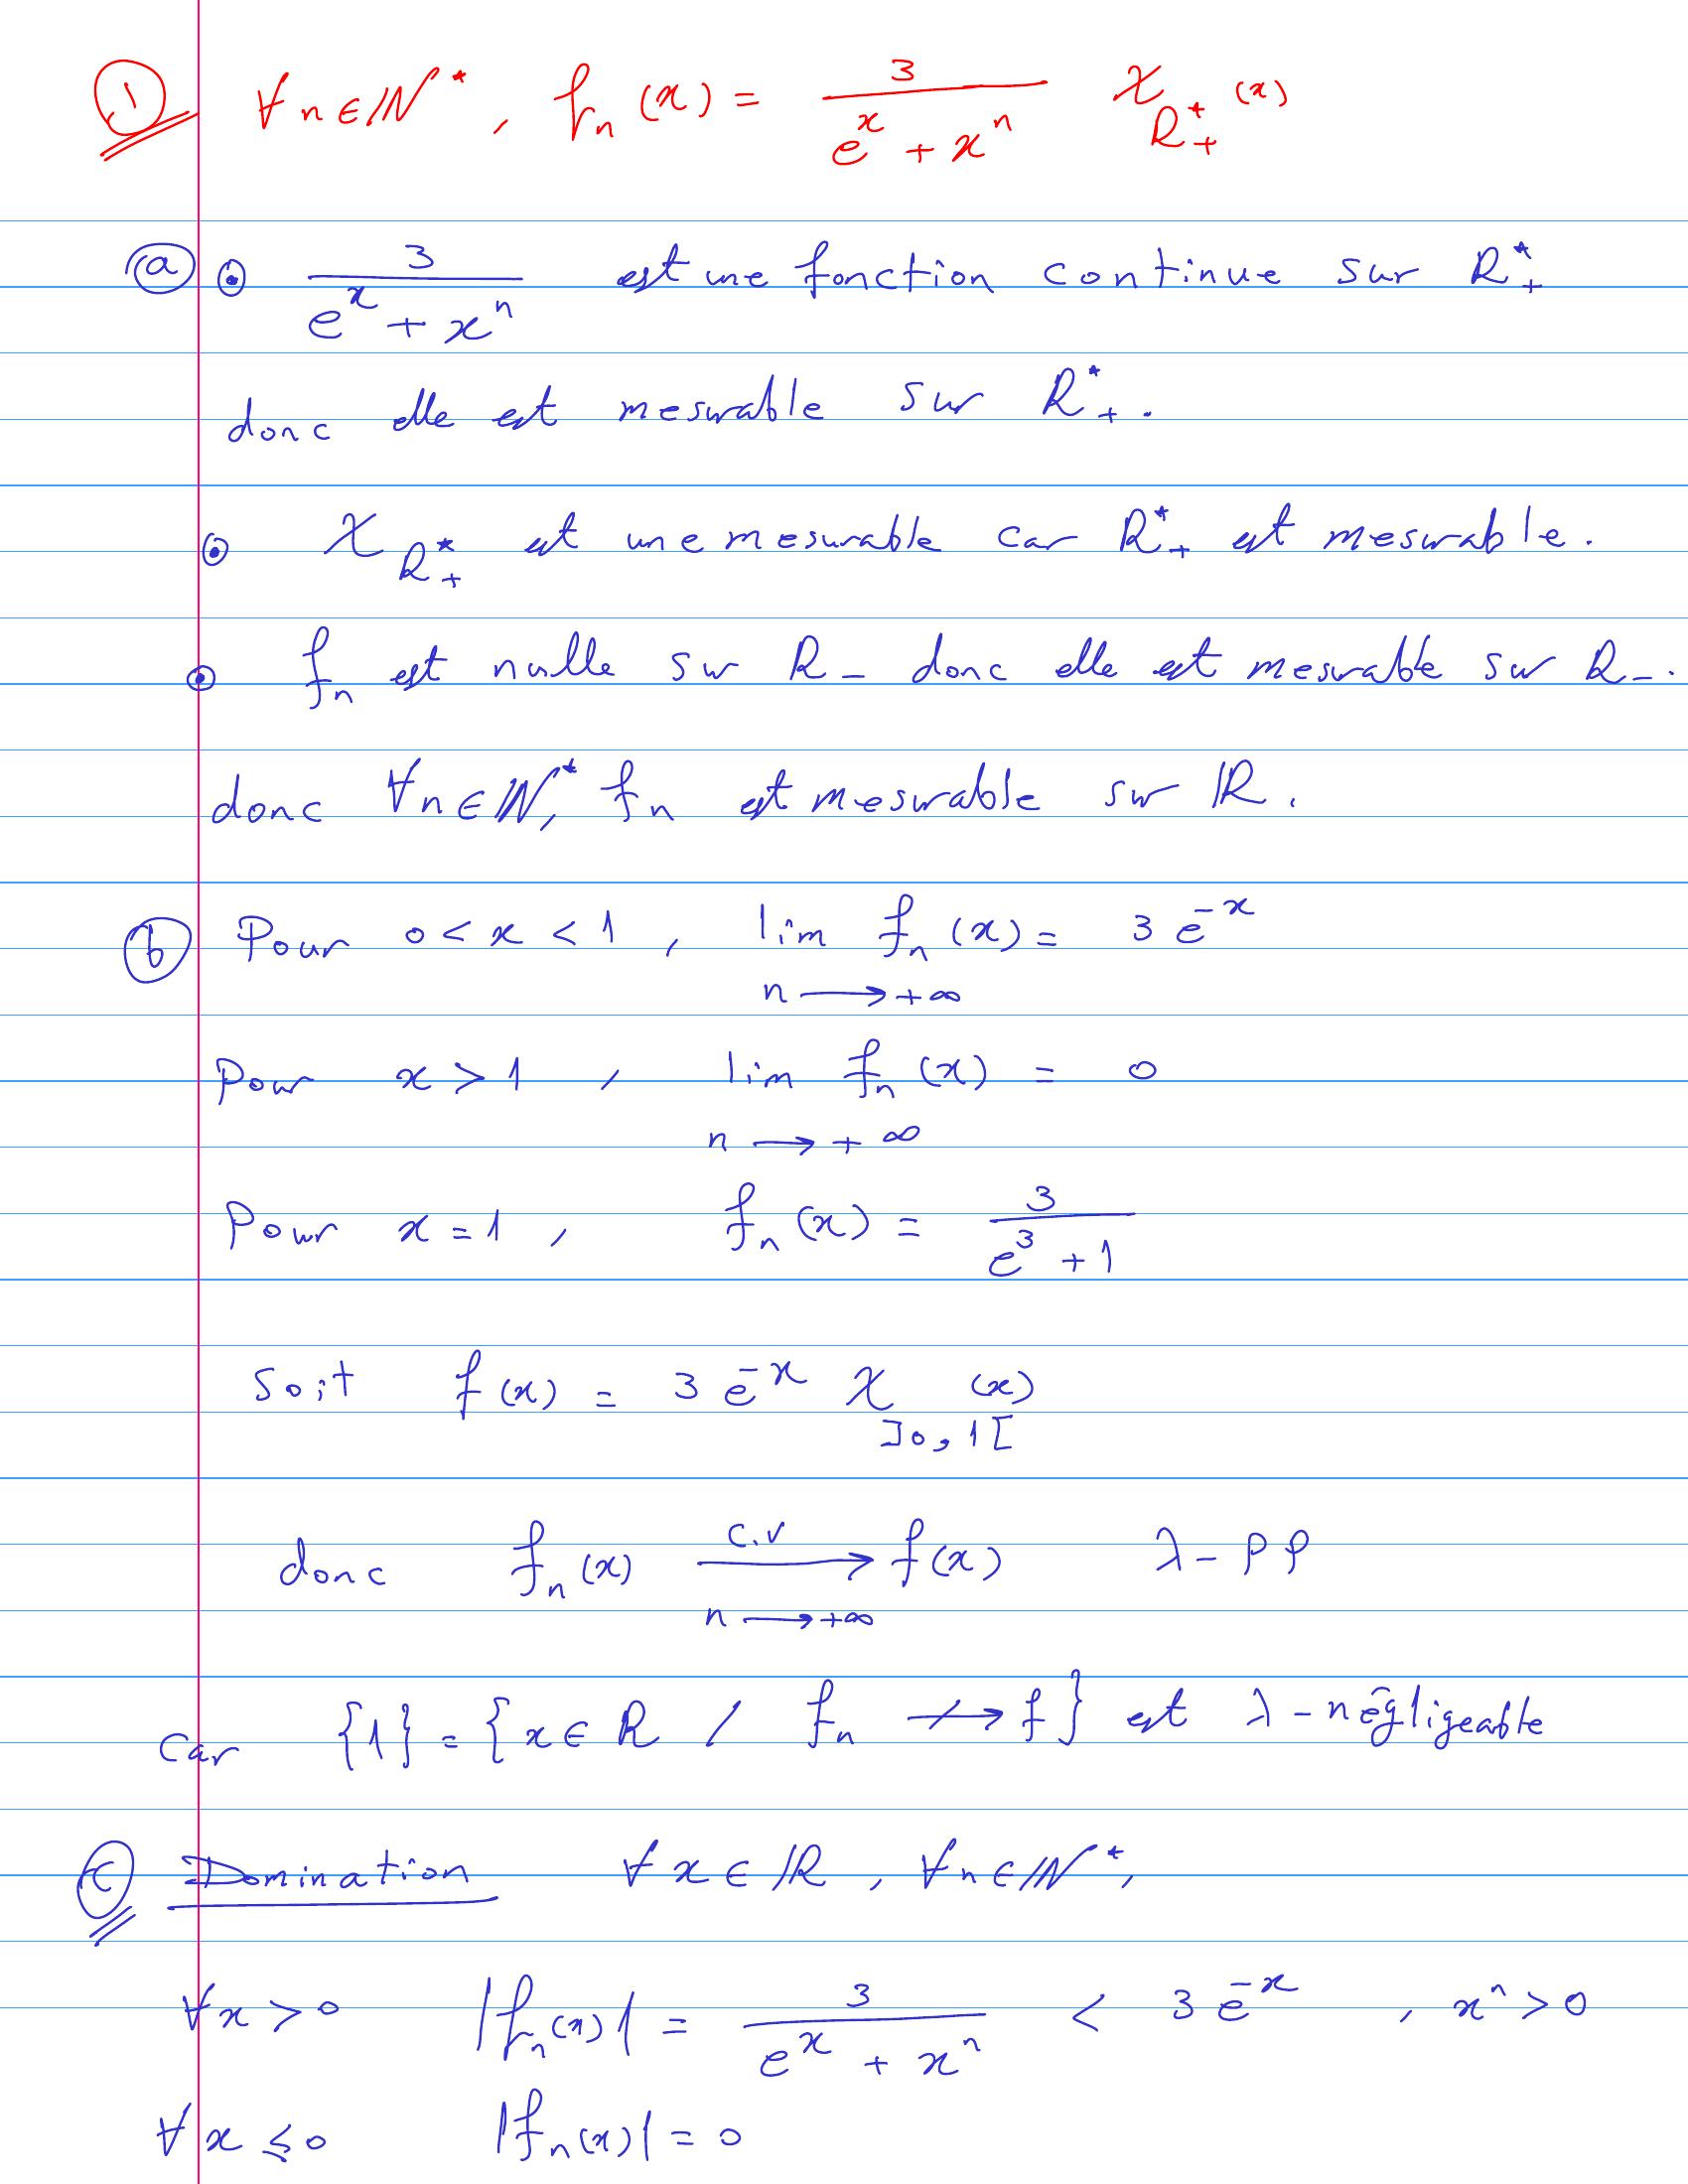 ① ∀n∈ℕ*, fₙ(x) = 3/(eˣ + xⁿ) χ_{R₊*}(x)
ⓐ ⊙ 3/(eˣ + xⁿ) est une fonction continue sur R₊*
donc elle est mesurable sur R₊*.
⊙ χ_{R₊*} est une mesurable car R₊* est mesurable.
⊙ fₙ est nulle sur R₋ donc elle est mesurable sur R₋.
donc ∀n∈ℕ*, fₙ est mesurable sur ℝ.
ⓑ Pour 0 < x < 1, lim fₙ(x) = 3 e⁻ˣ
n ⟶ +∞
Pour x > 1, lim fₙ(x) = 0
n ⟶ +∞
Pour x = 1, fₙ(x) = 3/(e³ + 1)
Soit f(x) = 3 e⁻ˣ χ_{]0,1[}(x)
donc fₙ(x) ⟶ f(x) λ-pp
c.v
n ⟶ +∞
car {1} = {x ∈ R / fₙ ↛ f} est λ-négligeable
ⓒ Domination ∀x∈ℝ, ∀n∈ℕ*,
∀x > 0 |fₙ(x)| = 3/(eˣ + xⁿ) < 3 e⁻ˣ, xⁿ > 0
∀x ≤ 0 |fₙ(x)| = 0